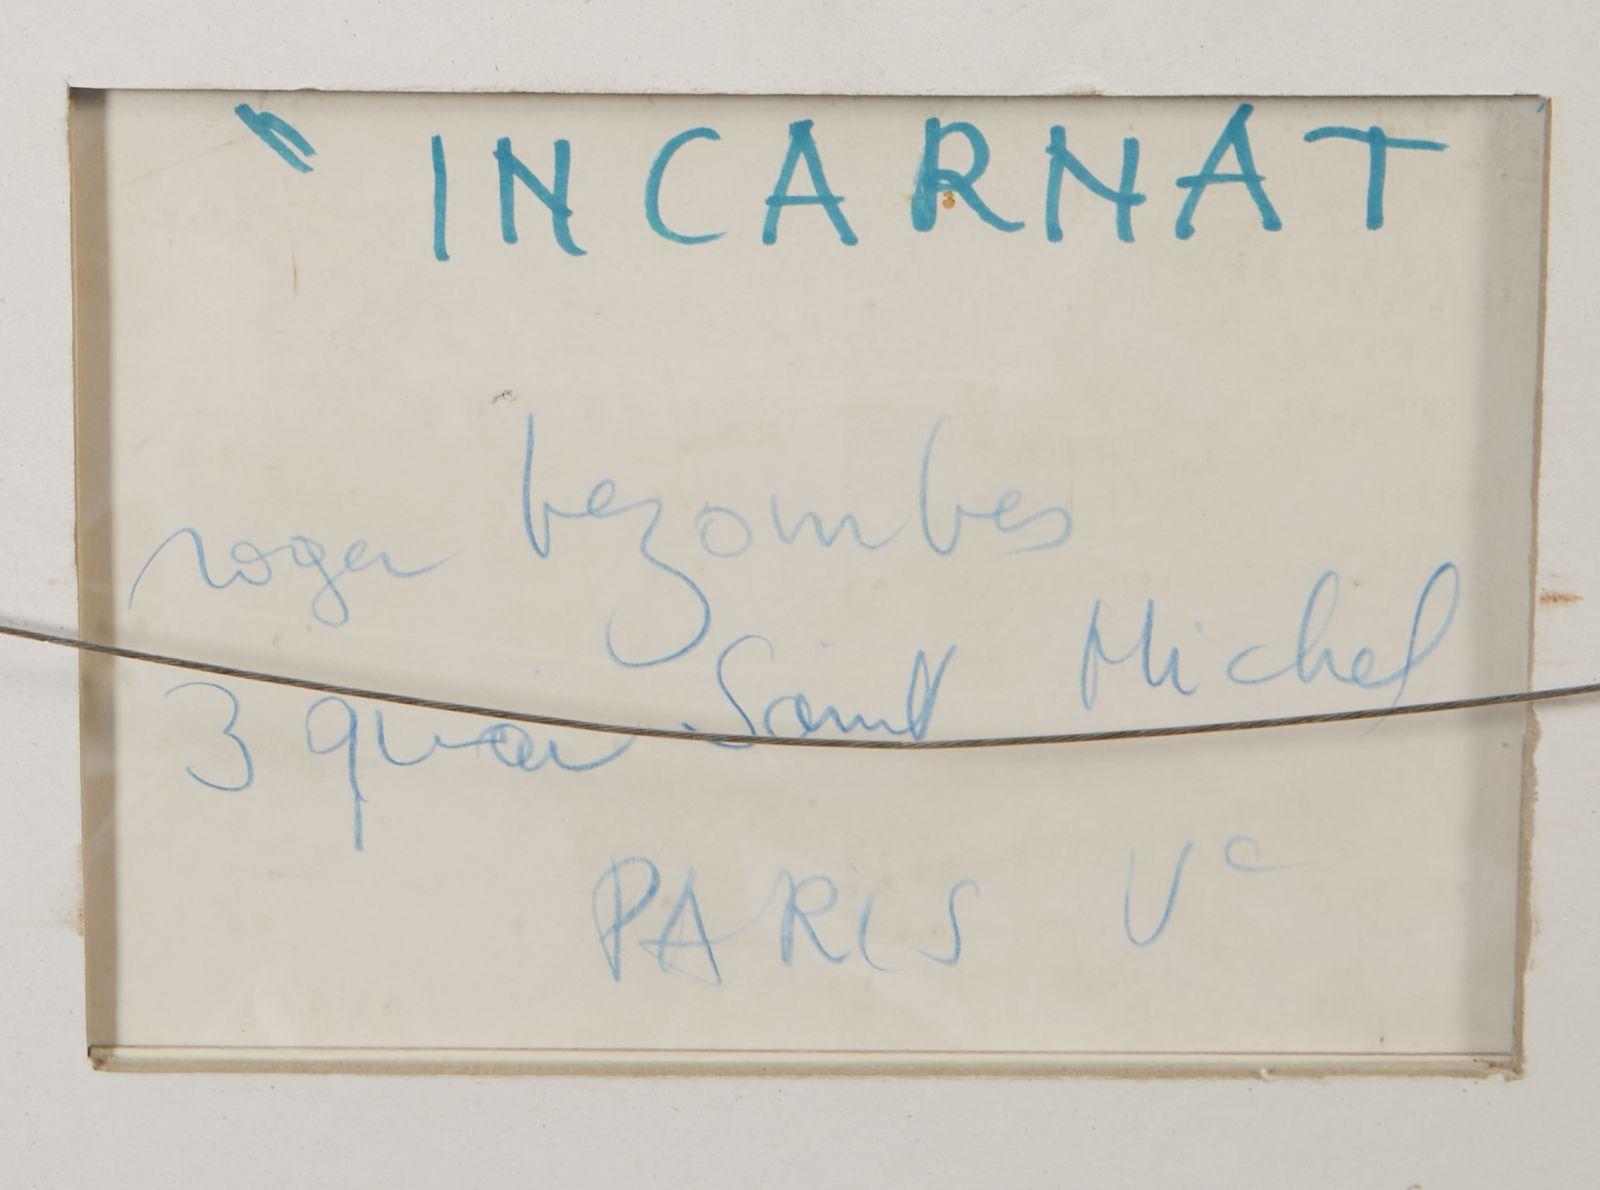 " INCARNAT
roger bezombes
3 quai Saint Michel
PARIS Ve